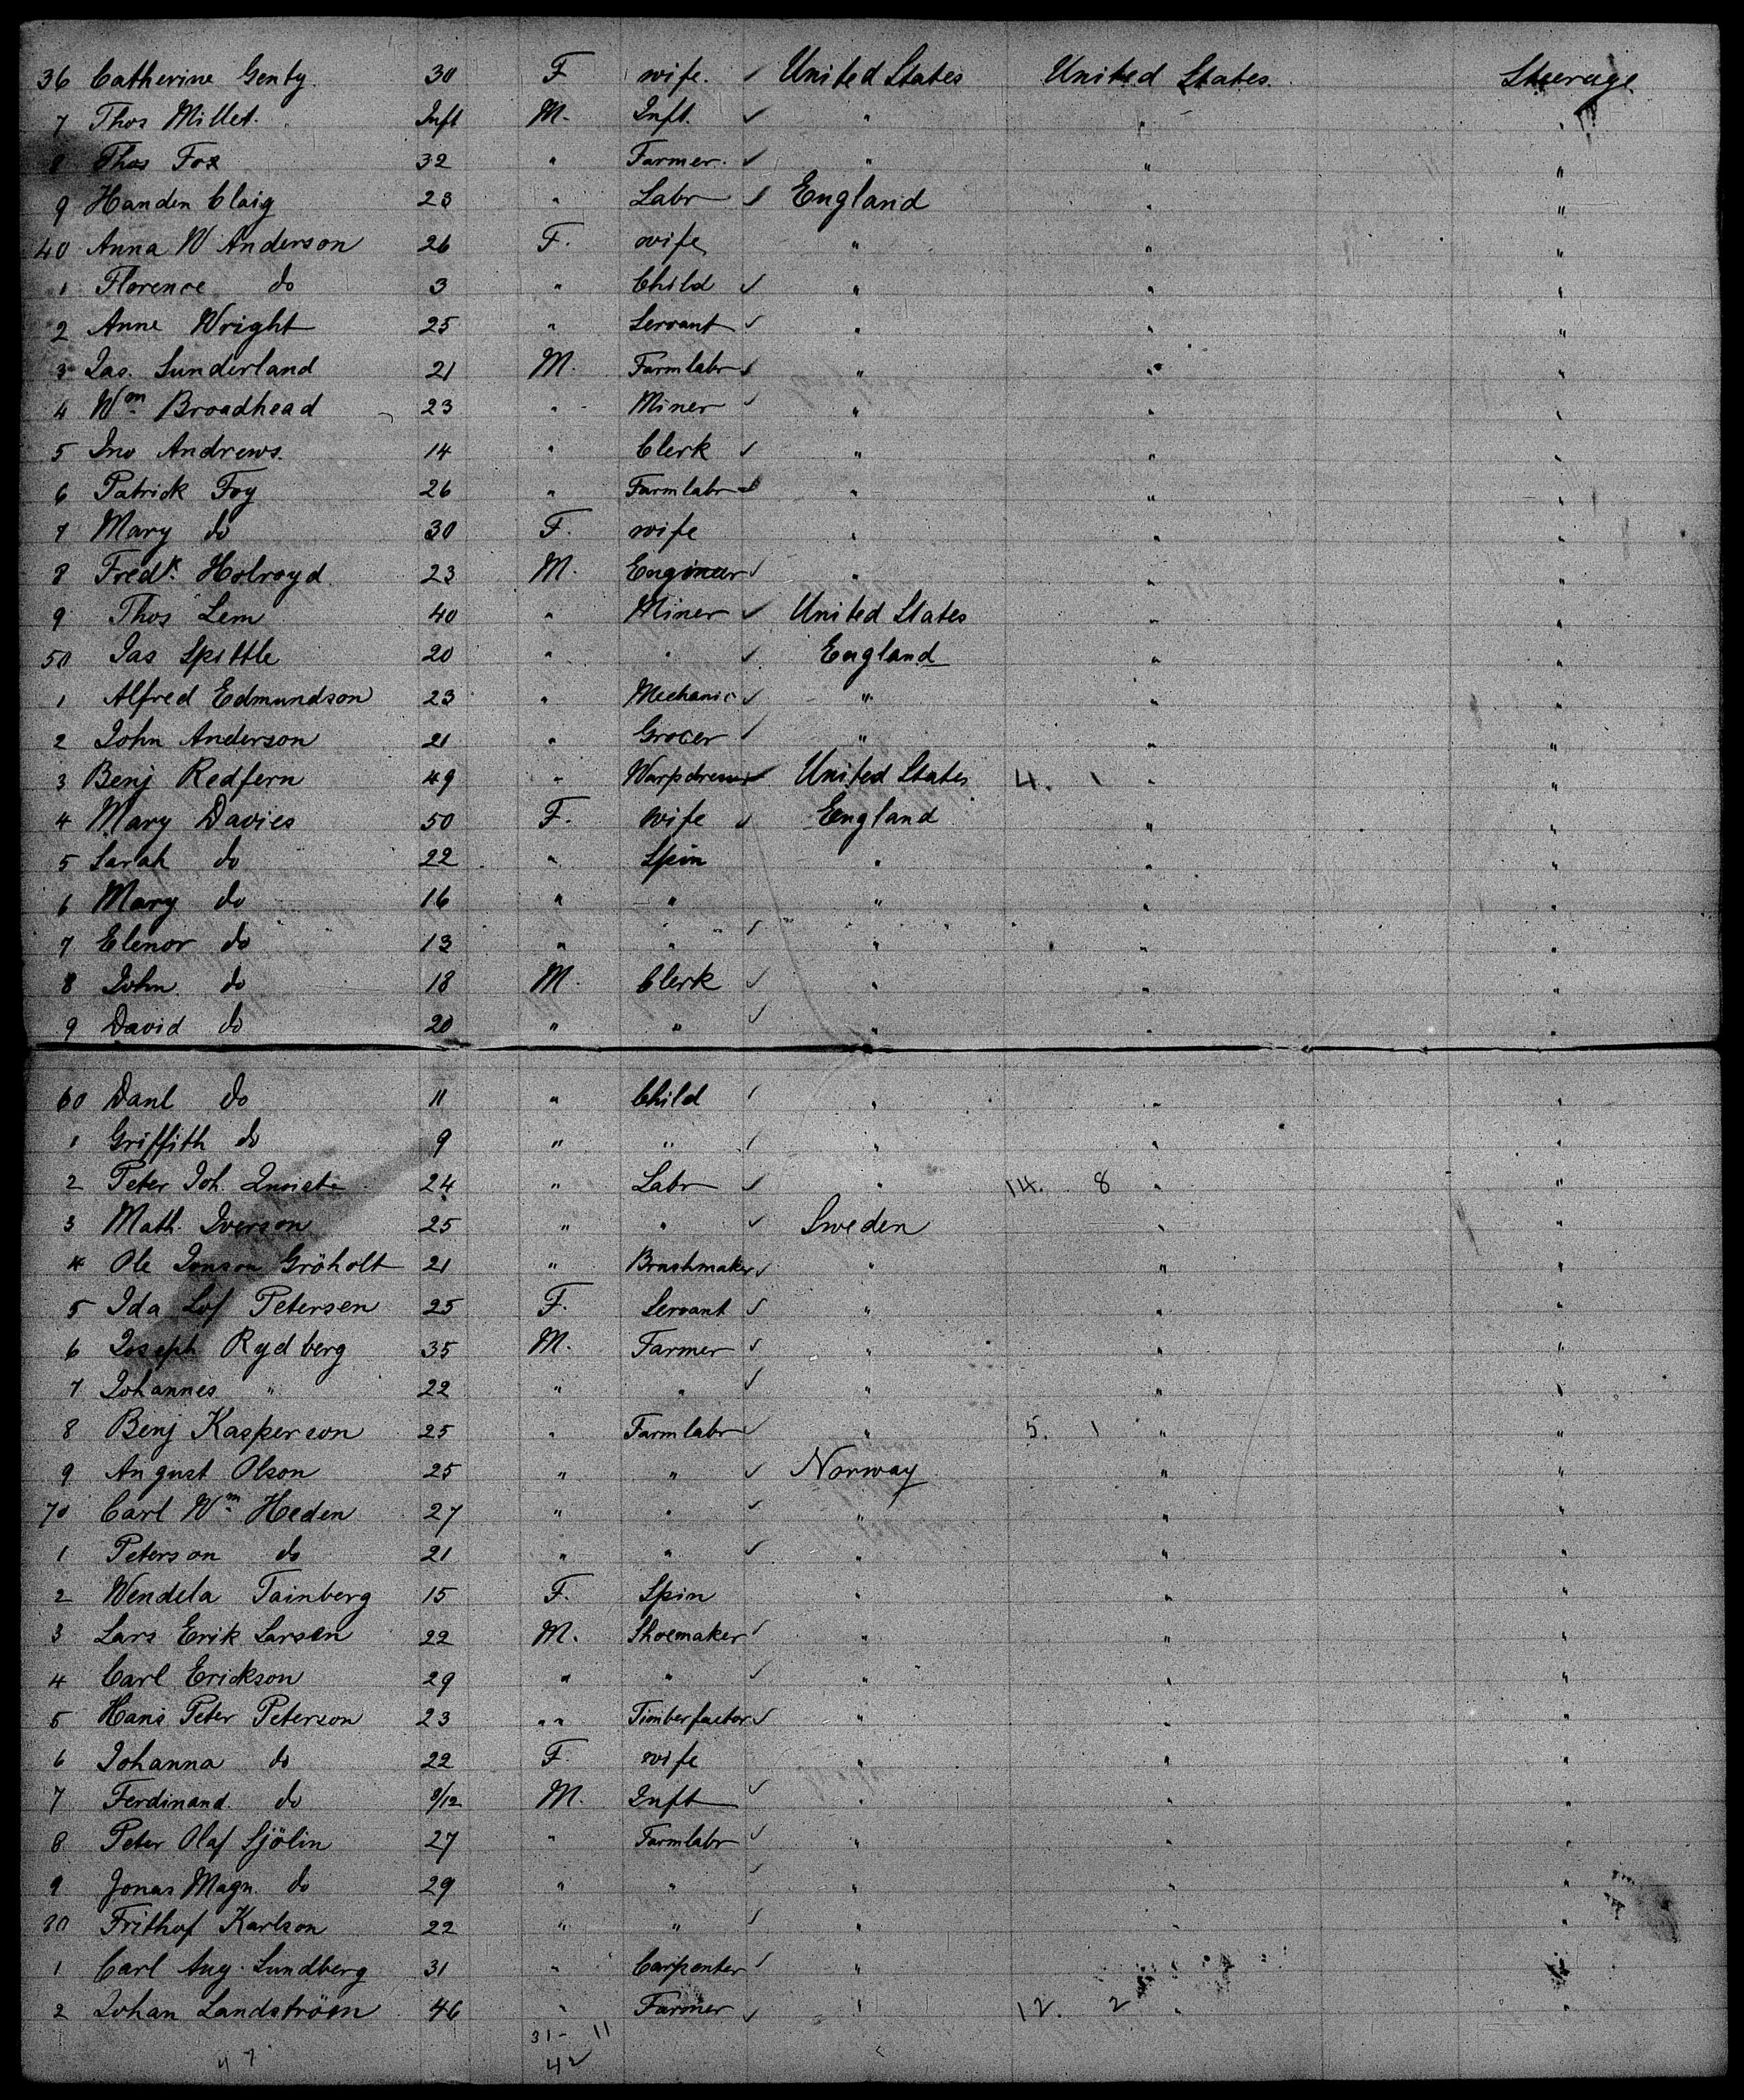 36 Catherine Genty. 30 F wife. ✓ United States United States. Steerage
7 Thos Millet. Inft M. Inft. ✓ " " "
8 Thos Fox 32 " Farmer. ✓ " " "
9 Handen Claig 23 " Labr ✓ England " "
40 Anna W Anderson 26 F. wife " " "
1 Florence do 3 " Child ✓ " " "
2 Anne Wright 25 " Servant ✓ " " "
3 Jas. Sunderland 21 M. Farmlabr ✓ " " "
4 Wm Broadhead 23 " Miner ✓ " " "
5 Jno Andrews. 14 " Clerk ✓ " " "
6 Patrick Foy 26 " Farmlabr ✓ " " "
7 Mary do 30 F. wife " " "
8 Fredk. Holroyd 23 M. Engineer ✓ " " "
9 Thos Lem 40 " Miner ✓ United States " "
50 Jas Spittle 20 " " ✓ England " "
1 Alfred Edmundson 23 " Mechanic ✓ " " "
2 John Anderson 21 " Grocer ✓ " " "
3 Benj Redfern 49 " Warpdresser ✓ United States 4. 1 " "
4 Mary Davies 50 F. Wife ✓ England " "
5 Sarah do 22 " Spin " " "
6 Mary do 16 " " " " "
7 Elenor do 13 " " ✓ " " "
8 John do 18 M. Clerk ✓ " " "
9 David do 20 " " ✓ " " "
60 Danl do 11 " Child ✓ " " "
1 Griffith do 9 " " ✓ " " "
2 Peter Joh. 24 " Labr ✓ " 14. 8 " "
3 Math. Iverson 25 " " ✓ Sweden " "
4 Ole Jonson Gröholt 21 " Brushmaker ✓ " " "
5 Ida Lof Petersen 25 F. Servant ✓ " " "
6 Joseph Rydberg 35 M. Farmer ✓ " " "
7 Johannes " 22 " " ✓ " " "
8 Benj Kasperson 25 " Farmlabr ✓ " 5. 1 " "
9 August Olson 25 " " ✓ Norway " "
70 Carl Wm Heden 27 " " ✓ " " "
1 Peterson do 21 " " ✓ " " "
2 Wendela Tainberg 15 F. Spin " " "
3 Lars Erik Larsen 22 M. Shoemaker ✓ " " "
4 Carl Erickson 29 " " ✓ " " "
5 Hans Peter Peterson 23 " " Timberfactor ✓ " " "
6 Johanna do 22 F. wife " " "
7 Ferdinand. do 9/12 M. Inft ✓ " " "
8 Peter Olaf Sjölin 27 " Farmlabr ✓ " " "
9 Jonas Magn. do 29 " " ✓ " " "
80 Frithof Karlson 22 " " ✓ " " "
1 Carl Aug. Lundberg 31 " Carpenter ✓ " " "
2 Johan Landström 46 " Farmer ✓ " 12. 2 " "
31- 11
47 42